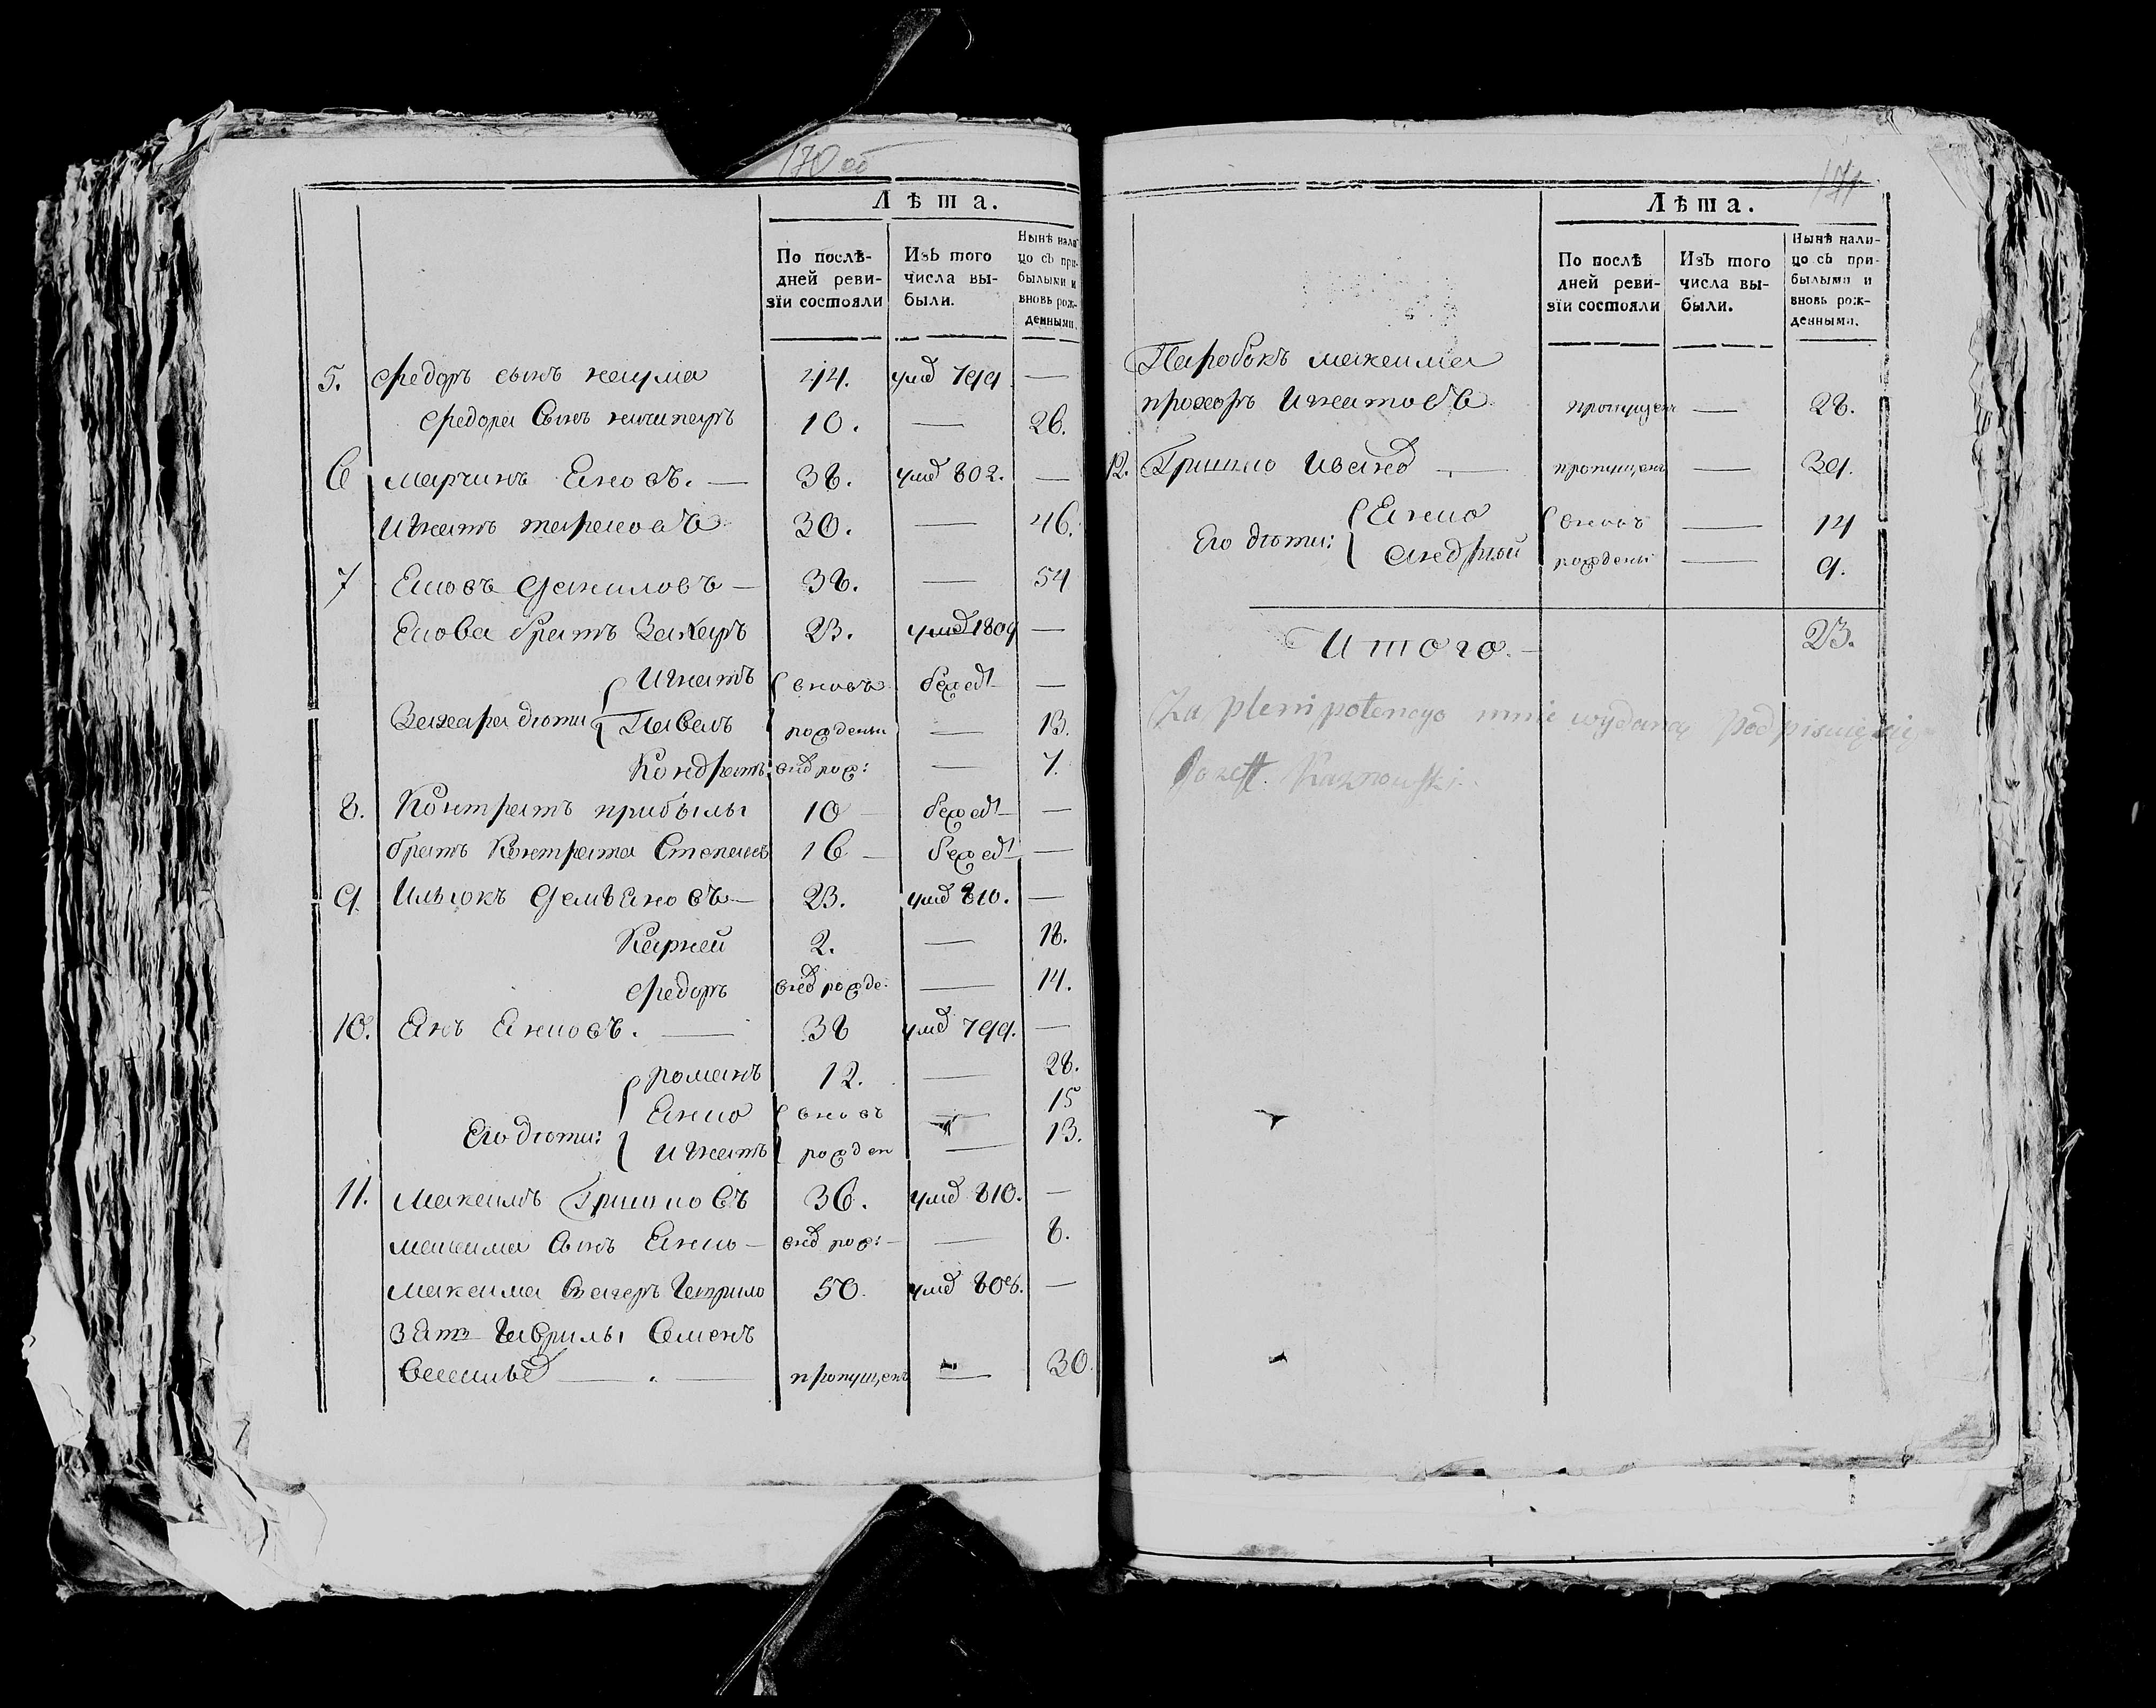 170 об
Лѣта.
По послѣдней ревизіи состояли
Изъ того числа выбыли.
Нынѣ налицо съ прибылыми и вновь рожденными.
5. Федоръ сынъ наума 44. умд 799 —
Федора Сынъ ничипаръ 10. — 26.
6 марчинъ Яновъ. — 38. умд 802. —
Игнатъ тарасовъ 30. — 46.
7 Яковъ Даниловъ — 38. — 54
Якова братъ Захаръ 23. умд 1809 —
Игнатъ вновъ бежал —
Захара дѣти Павелъ рожденъи — 13.
Кондратъ внд рож: — 7.
8. Контратъ прибылы 10 — бежал —
братъ Контрата Степанъ 16 — бежал —
9 Ильюкъ Демъяновъ — 23. умд 810. —
Карней 2. — 18.
Федоръ внд рожде: — 14.
10. Янъ Янковъ. — 38 умд 799. —
романъ 12. — 28.
Янко вновъ — 15
Его дѣти: Игнатъ рожден — 13.
11. Максимъ Гришковъ 36. умд 810. —
максима Сынъ Янко — внд рож: — 8.
максима Гаврило 50. умд 808. —
зятъ Гаврилы Семенъ
Васильд — . — пропущенъ — 30.
171
Лѣта.
По послѣ дней ревизіи состояли
Изъ того числа выбыли.
Нынѣ налицо съ прибылыми и вновь рожденными.
Паробокъ максима
прохоръ Игнатовъ пропущенъ — 28.
12. Гришко Иванд — пропущенъ — 39.
Янко вновъ — 14
Его дѣти: андрѣй рождены — 9.
Итого. — 23.
Za plenipotencyo mnie wydaną podpisuię się
Jozeff. Kaznowski.